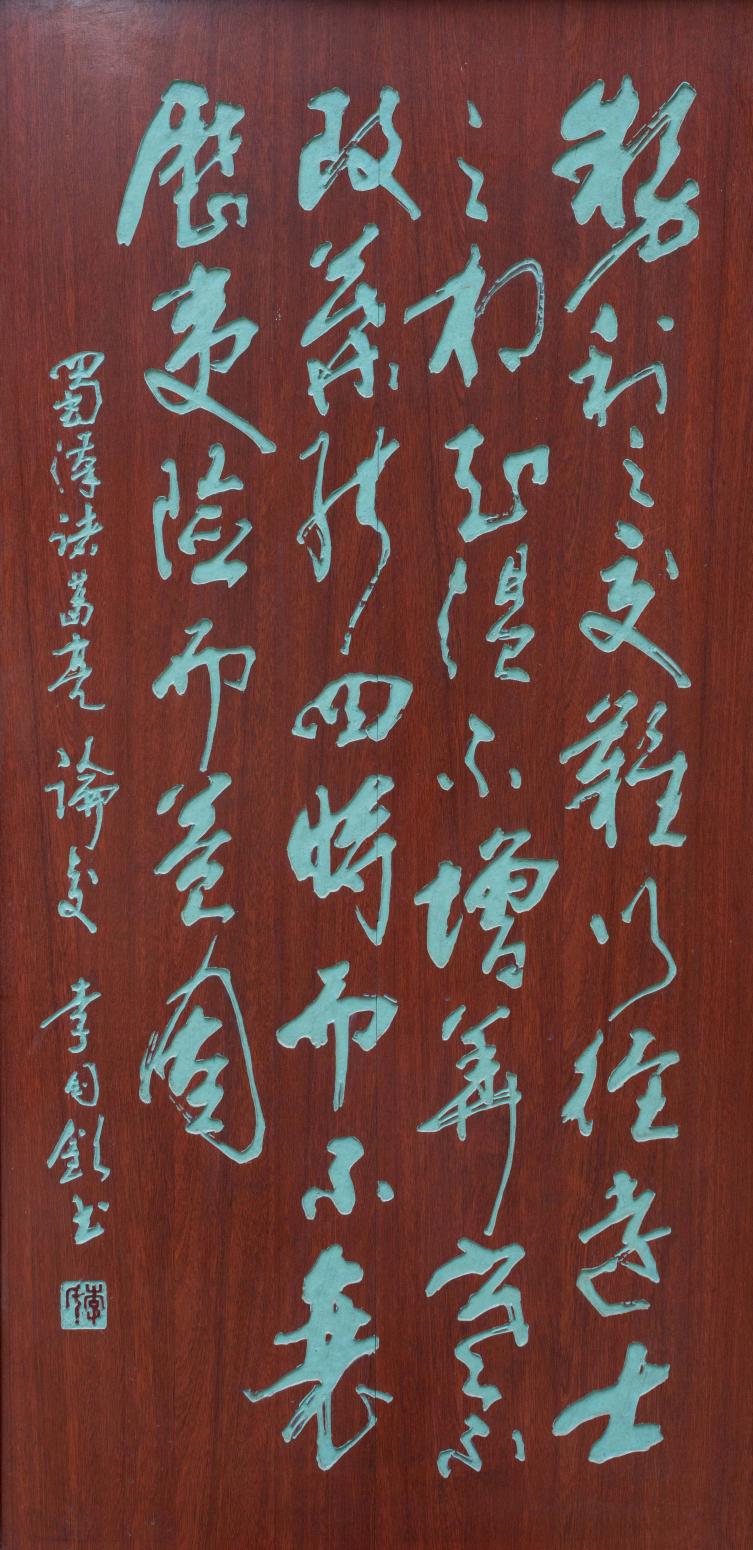 勢利之交難以經遠士
之相知溫不增華寒不
改葉能四時而不衰
歷夷險而益固
蜀漢諸葛亮 論交 李書